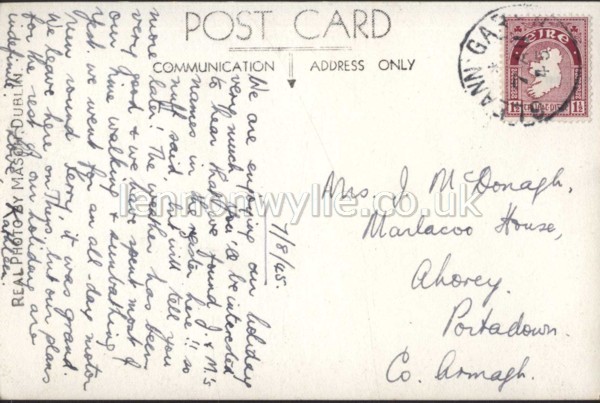 POST CARD
COMMUNICATION
ADDRESS ONLY
7/8/45.
We are enjoying our holiday
very much. You'd be interested
to hear that we found J & M.'s
names in the register here!! so
nuff said, but will tell you
more later! The weather has been
very good & we have spent most of
our time walking & sunbathing.
Yest. we went for an all-day motor
tour round Kerry, it was grand.
We leave here on Thurs. but our plans
for the rest of our holiday are
indefinite. Love, Kathleen.
Mrs. J McDonagh,
Marlacoo House,
Ahorey.
Portadown.
Co. Armagh.
REAL PHOTO BY MASON, DUBLIN
éIRe
1½
1½
lennonwylie.co.uk